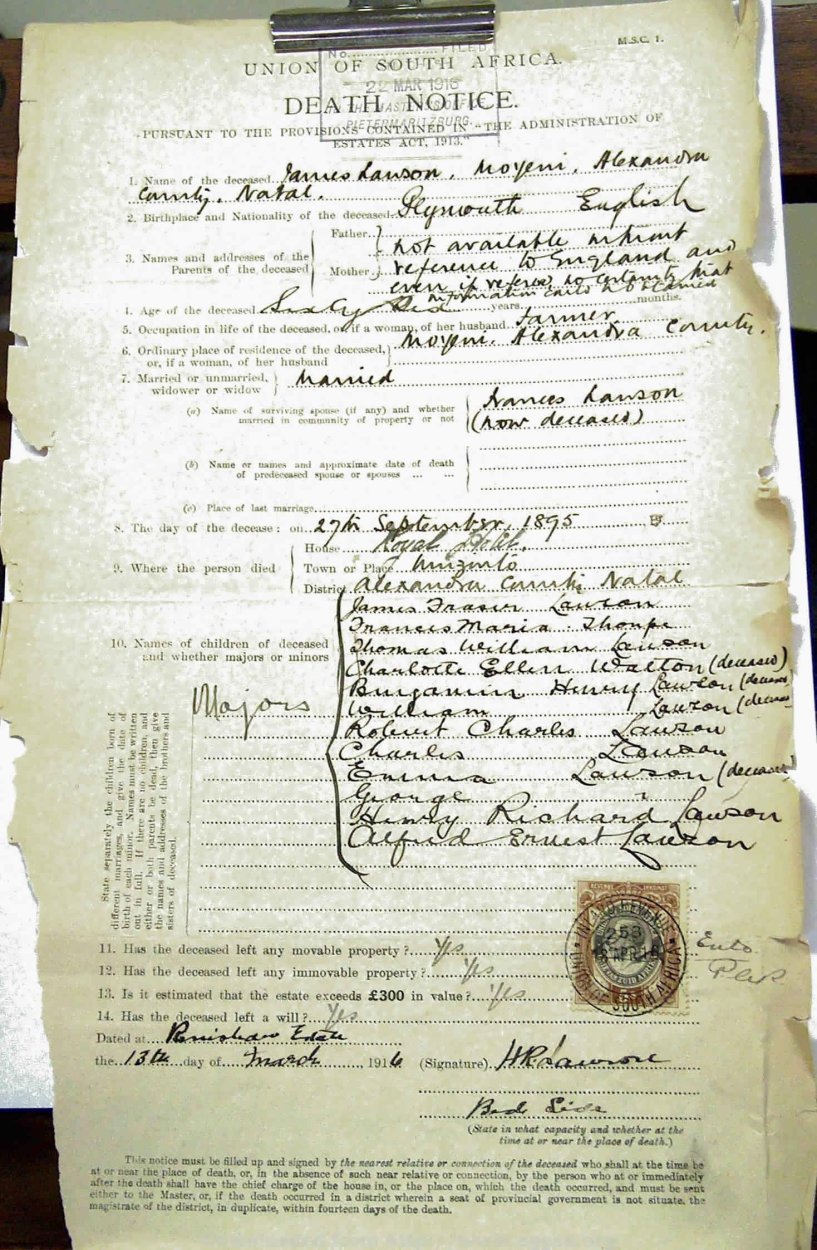 M.S.C. 1.
No. FILED
UNION OF SOUTH AFRICA.
22 MAR 1916
DEATH NOTICE.
PIETERMARITZBURG.
PURSUANT TO THE PROVISIONS CONTAINED IN "THE ADMINISTRATION OF
ESTATES ACT, 1913."
1. Name of the deceased James Lawson, Moyeni, Alexandra
County, Natal.
2. Birthplace and Nationality of the deceased Plymouth English
3. Names and addresses of the Parents of the deceased
Father. Mother. not available without
reference to England and
even if referred no certainty that
information could be obtained
4. Age of the deceased Sixty Six years, months.
5. Occupation in life of the deceased, or if a woman, of her husband farmer
6. Ordinary place of residence of the deceased, Moyeni, Alexandra County.
or, if a woman, of her husband
7. Married or unmarried, widower or widow Married
(a) Name of surviving spouse (if any) and whether Frances Lawson
married in community of property or not (now deceased)
(b) Name or names and approximate date of death
of predeceased spouse or spouses ... ...
(c) Place of last marriage
8. The day of the decease: on 27th September, 1895
9. Where the person died
House Royal Hotel.
Town or Place Umzinto
District Alexandra County Natal
10. Names of children of deceased
and whether majors or minors
Majors
James Fraser Lawson
Francis Maria Thorpe
Thomas William Lawson
Charlotte Ellen Walton (deceased)
Benjamin Henry Lawson (deceased
William Lawson (deceas
Robert Charles Lawson
Charles Lawson
Emma Lawson (deceased
George "
Henry Richard Lawson
Alfred Ernest Lawson
State separately the children born of
different marriages, and give the date of
birth of each minor. Names must be written
out in full. If there are no children, and
either or both parents be dead, then give
the names and addresses of the brothers and
sisters of deceased.
11. Has the deceased left any movable property? Yes
12. Has the deceased left any immovable property? Yes
13. Is it estimated that the estate exceeds £300 in value? Yes
14. Has the deceased left a will? Yes
REVENUE INKOMST
INLAND REVENUE
258
UNION OF SOUTH AFRICA
Dated at Renishaw Estate
the 13th day of March, 1916 (Signature) H R Lawson
(State in what capacity and whether at the
time at or near the place of death.)
This notice must be filled up and signed by the nearest relative or connection of the deceased who shall at the time be
at or near the place of death, or, in the absence of such near relative or connection, by the person who at or immediately
after the death shall have the chief charge of the house in, or the place on, which the death occurred, and must be sent
either to the Master, or, if the death occurred in a district wherein a seat of provincial government is not situate, the
magistrate of the district, in duplicate, within fourteen days of the death.